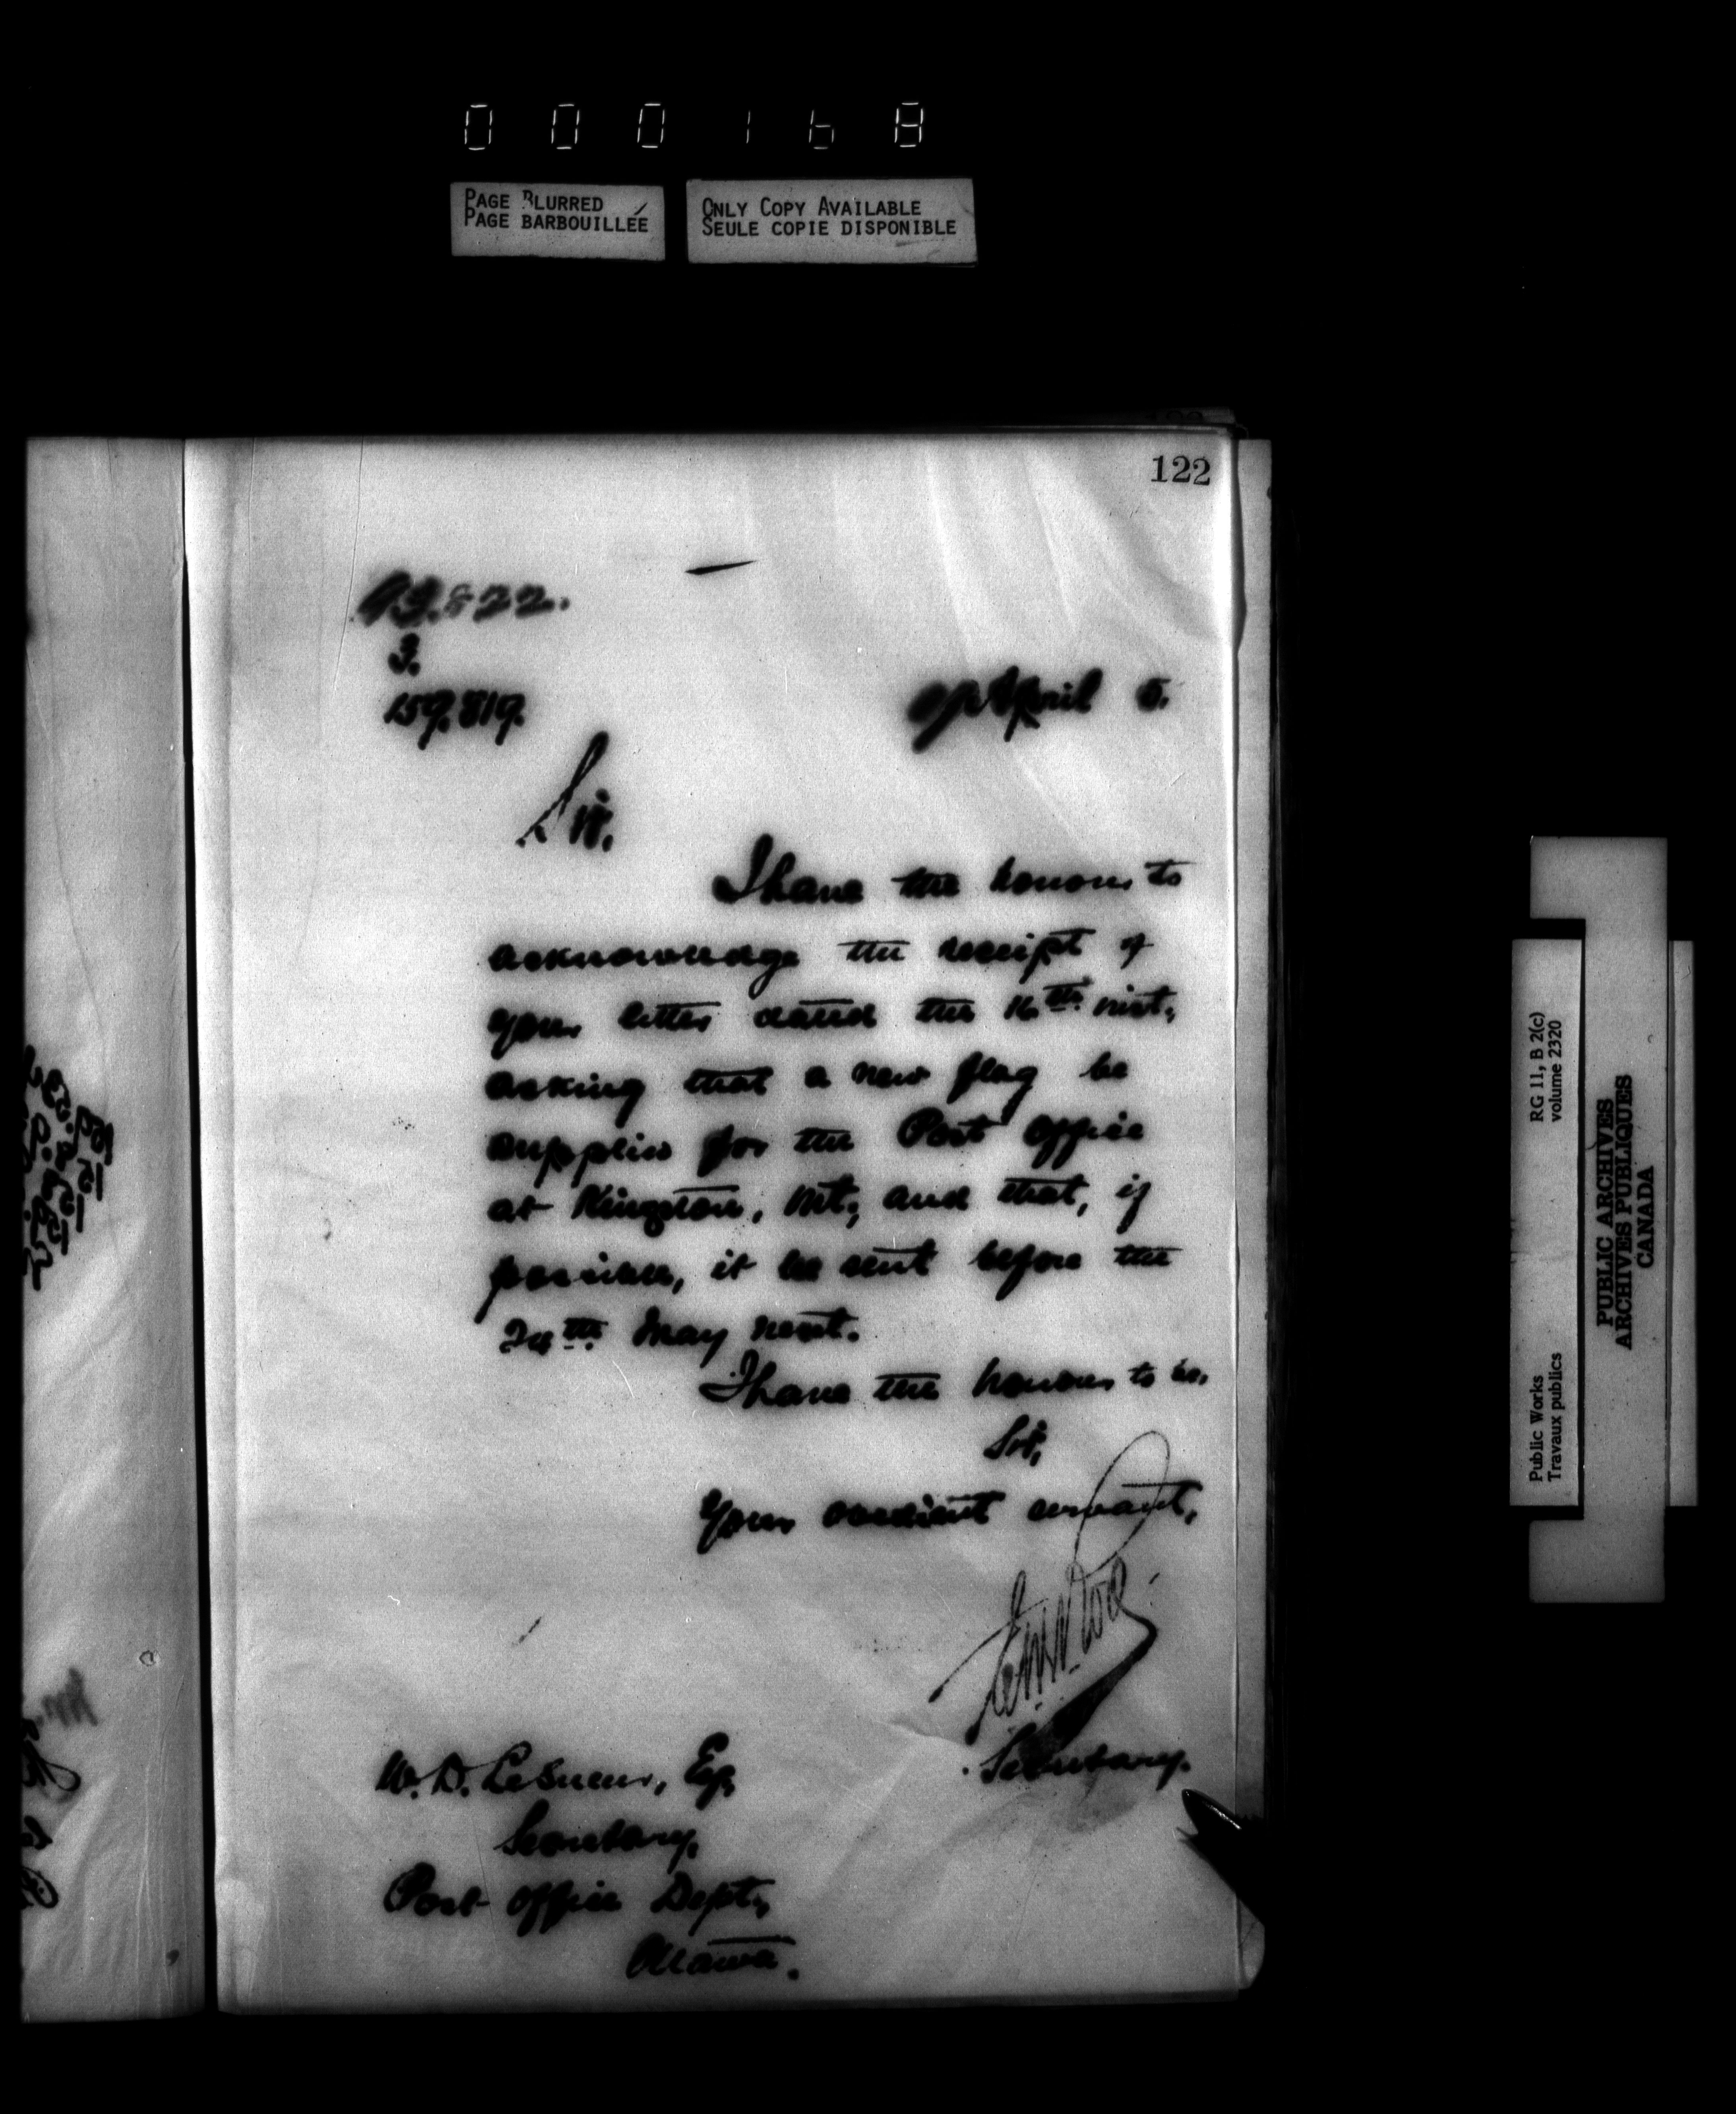 000168
PAGE BLURRED
PAGE BARBOUILLÉE
ONLY COPY AVAILABLE
SEULE COPIE DISPONIBLE
122
3.
159.819.
April 5.
Sir,
I have the honour to
acknowledge the receipt of
your letter dated the inst,
asking that a new flag be
supplied for the Post Office
at Kingston, Ont; and that, if
possible, it be sent before the
24th. May next.
I have the honour to be,
Sir,
Your obedient servant,
Secretary.
W. D. LeSueur, Esq,
Secretary,
Post Office Dept,
Ottawa.
RG 11, B 2(c)
volume 2320
Public Works
Travaux publics
PUBLIC ARCHIVES
ARCHIVES PUBLIQUES
CANADA